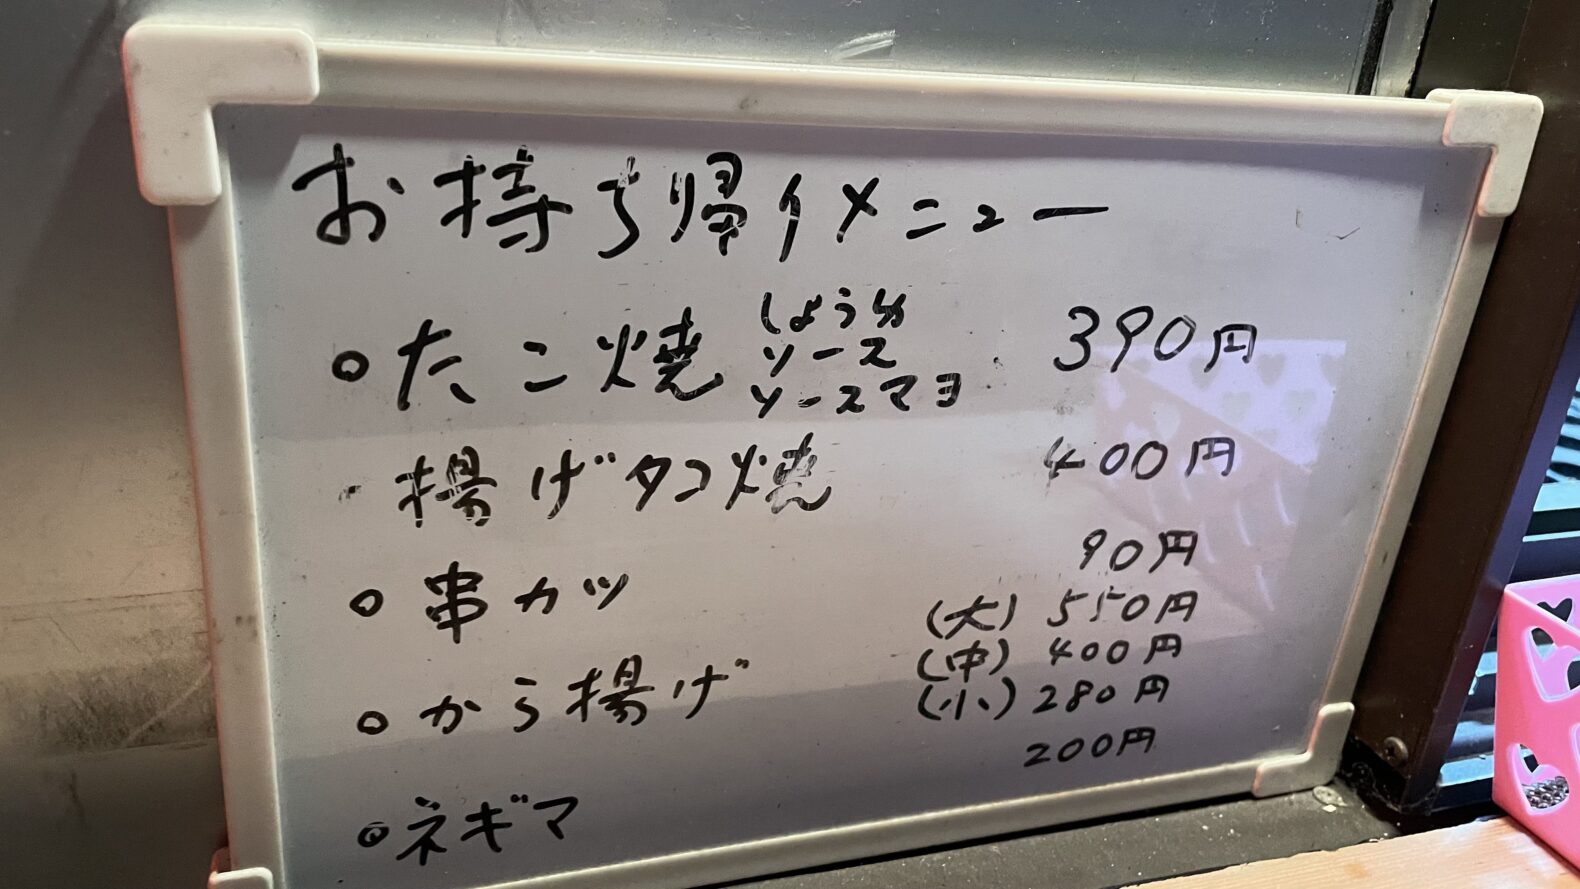 お持ち帰りメニュー
○たこ焼 しょう油 ソース ソースマヨ 390円
・揚げタコ焼 400円
○串カツ 90円
○から揚げ (大) 550円
(中) 400円
(小) 280円
○ネギマ 200円